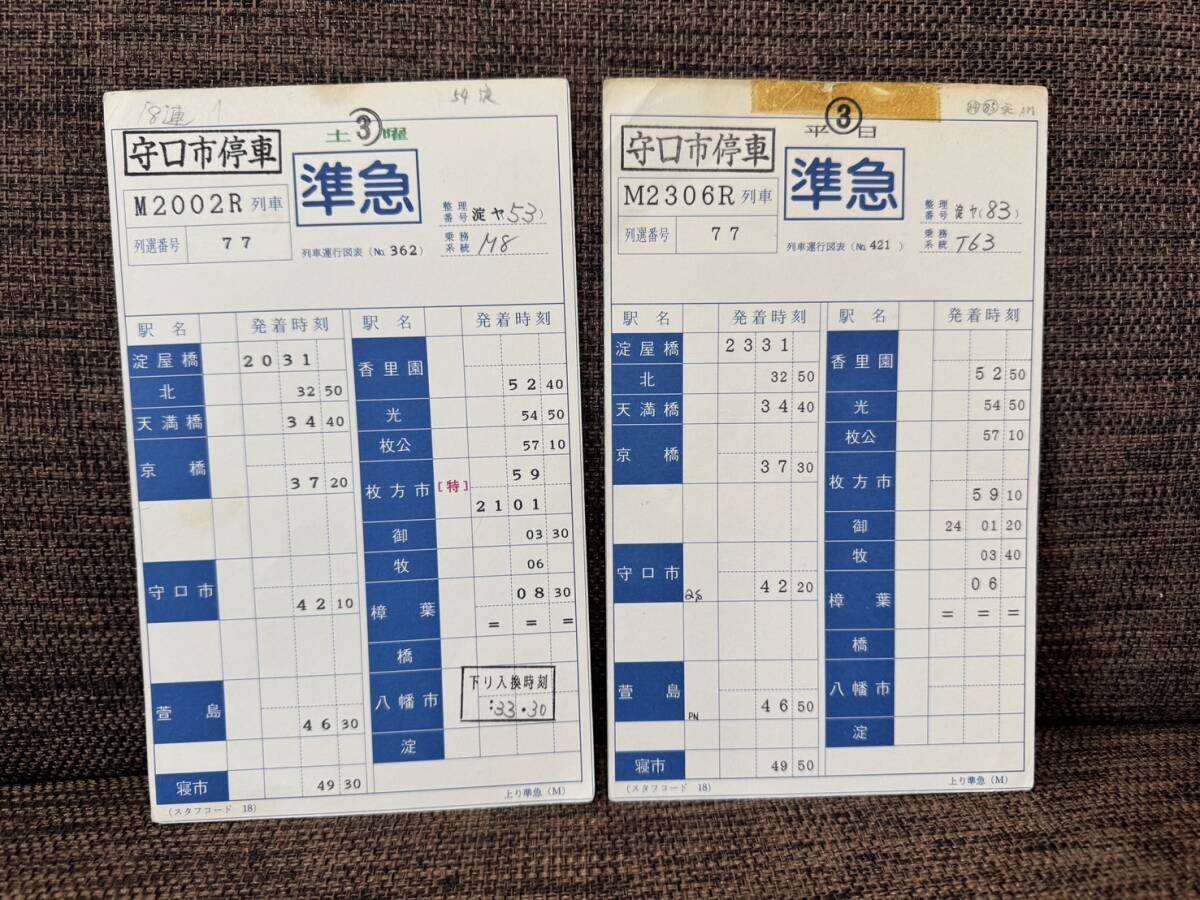 8連
54 淀
③
土曜
守口市停車
準急
M2002R 列車
列選番号 77
整理番号 淀ヤ(53)
乗務系統 M8
列車運行図表(No.362)
駅名 発着時刻
淀屋橋 2031
北 32 50
天満橋 34 40
京橋 37 20
守口市 42 10
萱島 46 30
寝市 49 30
(スタフコード 18)
駅名 発着時刻
香里園 52 40
光 54 50
枚公 57 10
枚方市 [特] 59
2101
御 03 30
牧 06
樟葉 08 30
= = =
橋
八幡市
下り入換時刻
:33.30
淀
上り準急(M)
③
平日
守口市停車
準急
M2306R 列車
列選番号 77
整理番号 淀ヤ(83)
乗務系統 T63
列車運行図表(No.421)
駅名 発着時刻
淀屋橋 2331
北 32 50
天満橋 34 40
京橋 37 30
守口市 42 20
萱島 PN 46 50
寝市 49 50
(スタフコード 18)
駅名 発着時刻
香里園 52 50
光 54 50
枚公 57 10
枚方市 59 10
御 24 01 20
牧 03 40
樟葉 06
= = =
橋
八幡市
淀
上り準急(M)